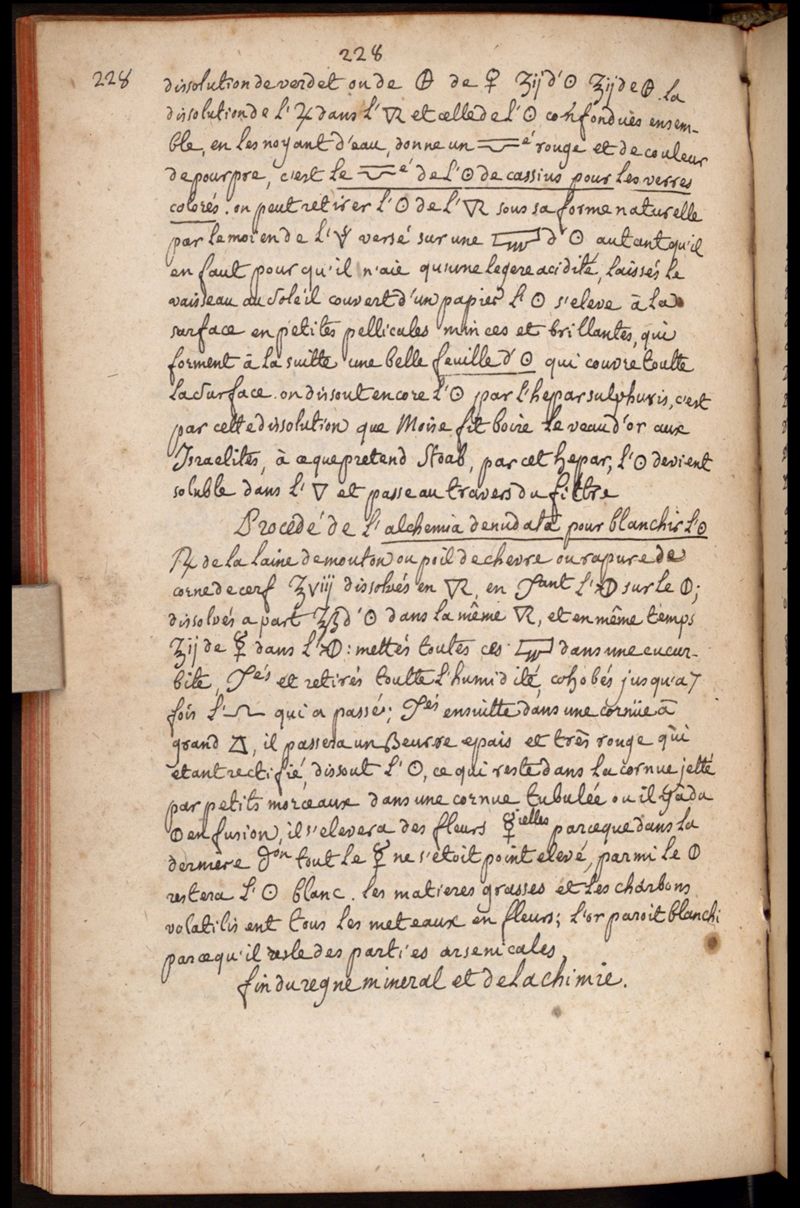 228
228
dissolution de verdet ou de 🜨 de ♀ ʒij d'☉ ʒij de 🜨. la
dissolution de l'♃ dans l'🜆 et celle de l'☉ confondues ensem-
ble, en les noyant d'eau, donne un é rouge et de couleur
de pourpre, c'est le é de l'☉ de cassius pour les verres
colorés. on peut retirer l'☉ de l'🜆 sous sa forme naturelle
par le moien de l' versé sur une d'☉ autant qu'il
en faut pour qu'il n'aie qu'une legere acidité, laissés le
vaisseau au Soleil couvert d'un papier l'☉ s'eleve à la
surface en petites pellicules minces et brillantes, qui
forment à la suitte une belle feuille d'☉ qui couvre toutte
la Surface. on dissout encore l'☉ par l'hepar sulphuris, c'est
par cette dissolution que Moïse fit boire le veau d'or aux
Israelites, à ce que pretend Stoab, par cet hepar, l'☉ devient
soluble dans l'▽ et passe au travers du filtre
Procédé de l'alchemia denudata pour blanchir l'☉
℞ de la laine de mouton ou poil de chevre ou rapure de
corne de cerf ʒviij dissolvés en 🜆, en ant l' sur le ;
dissolvés a part ʒß d'☉ dans la même 🜆, et en même temps
ʒij de ☿ dans l' : mettés toutes ces dans une cucur-
bite, és et retirés toutte l'humidité, cohobés jusqu'a 7
fois l' qui a passé; és ensuitte dans une cornüe à
grand △, il passera un Beurre epais et très rouge qui
etant rectifié, dissout l'☉, ce qui reste dans la cornue jetté
par petits morceaux dans une cornue tubulée ou il y a du
en fusion, il s'elevera des fleurs ☿ielles parceque dans la
derniere on tout le ☿ ne s'étoit point elevé, parmi le
restera l'☉ blanc. les matieres grasses et les charbons
volatilisent tous les meteaux en fleurs; l'or paroit blanchi
parcequ'il reste des parties arsenicales.
fin du regne mineral et de la chimie.